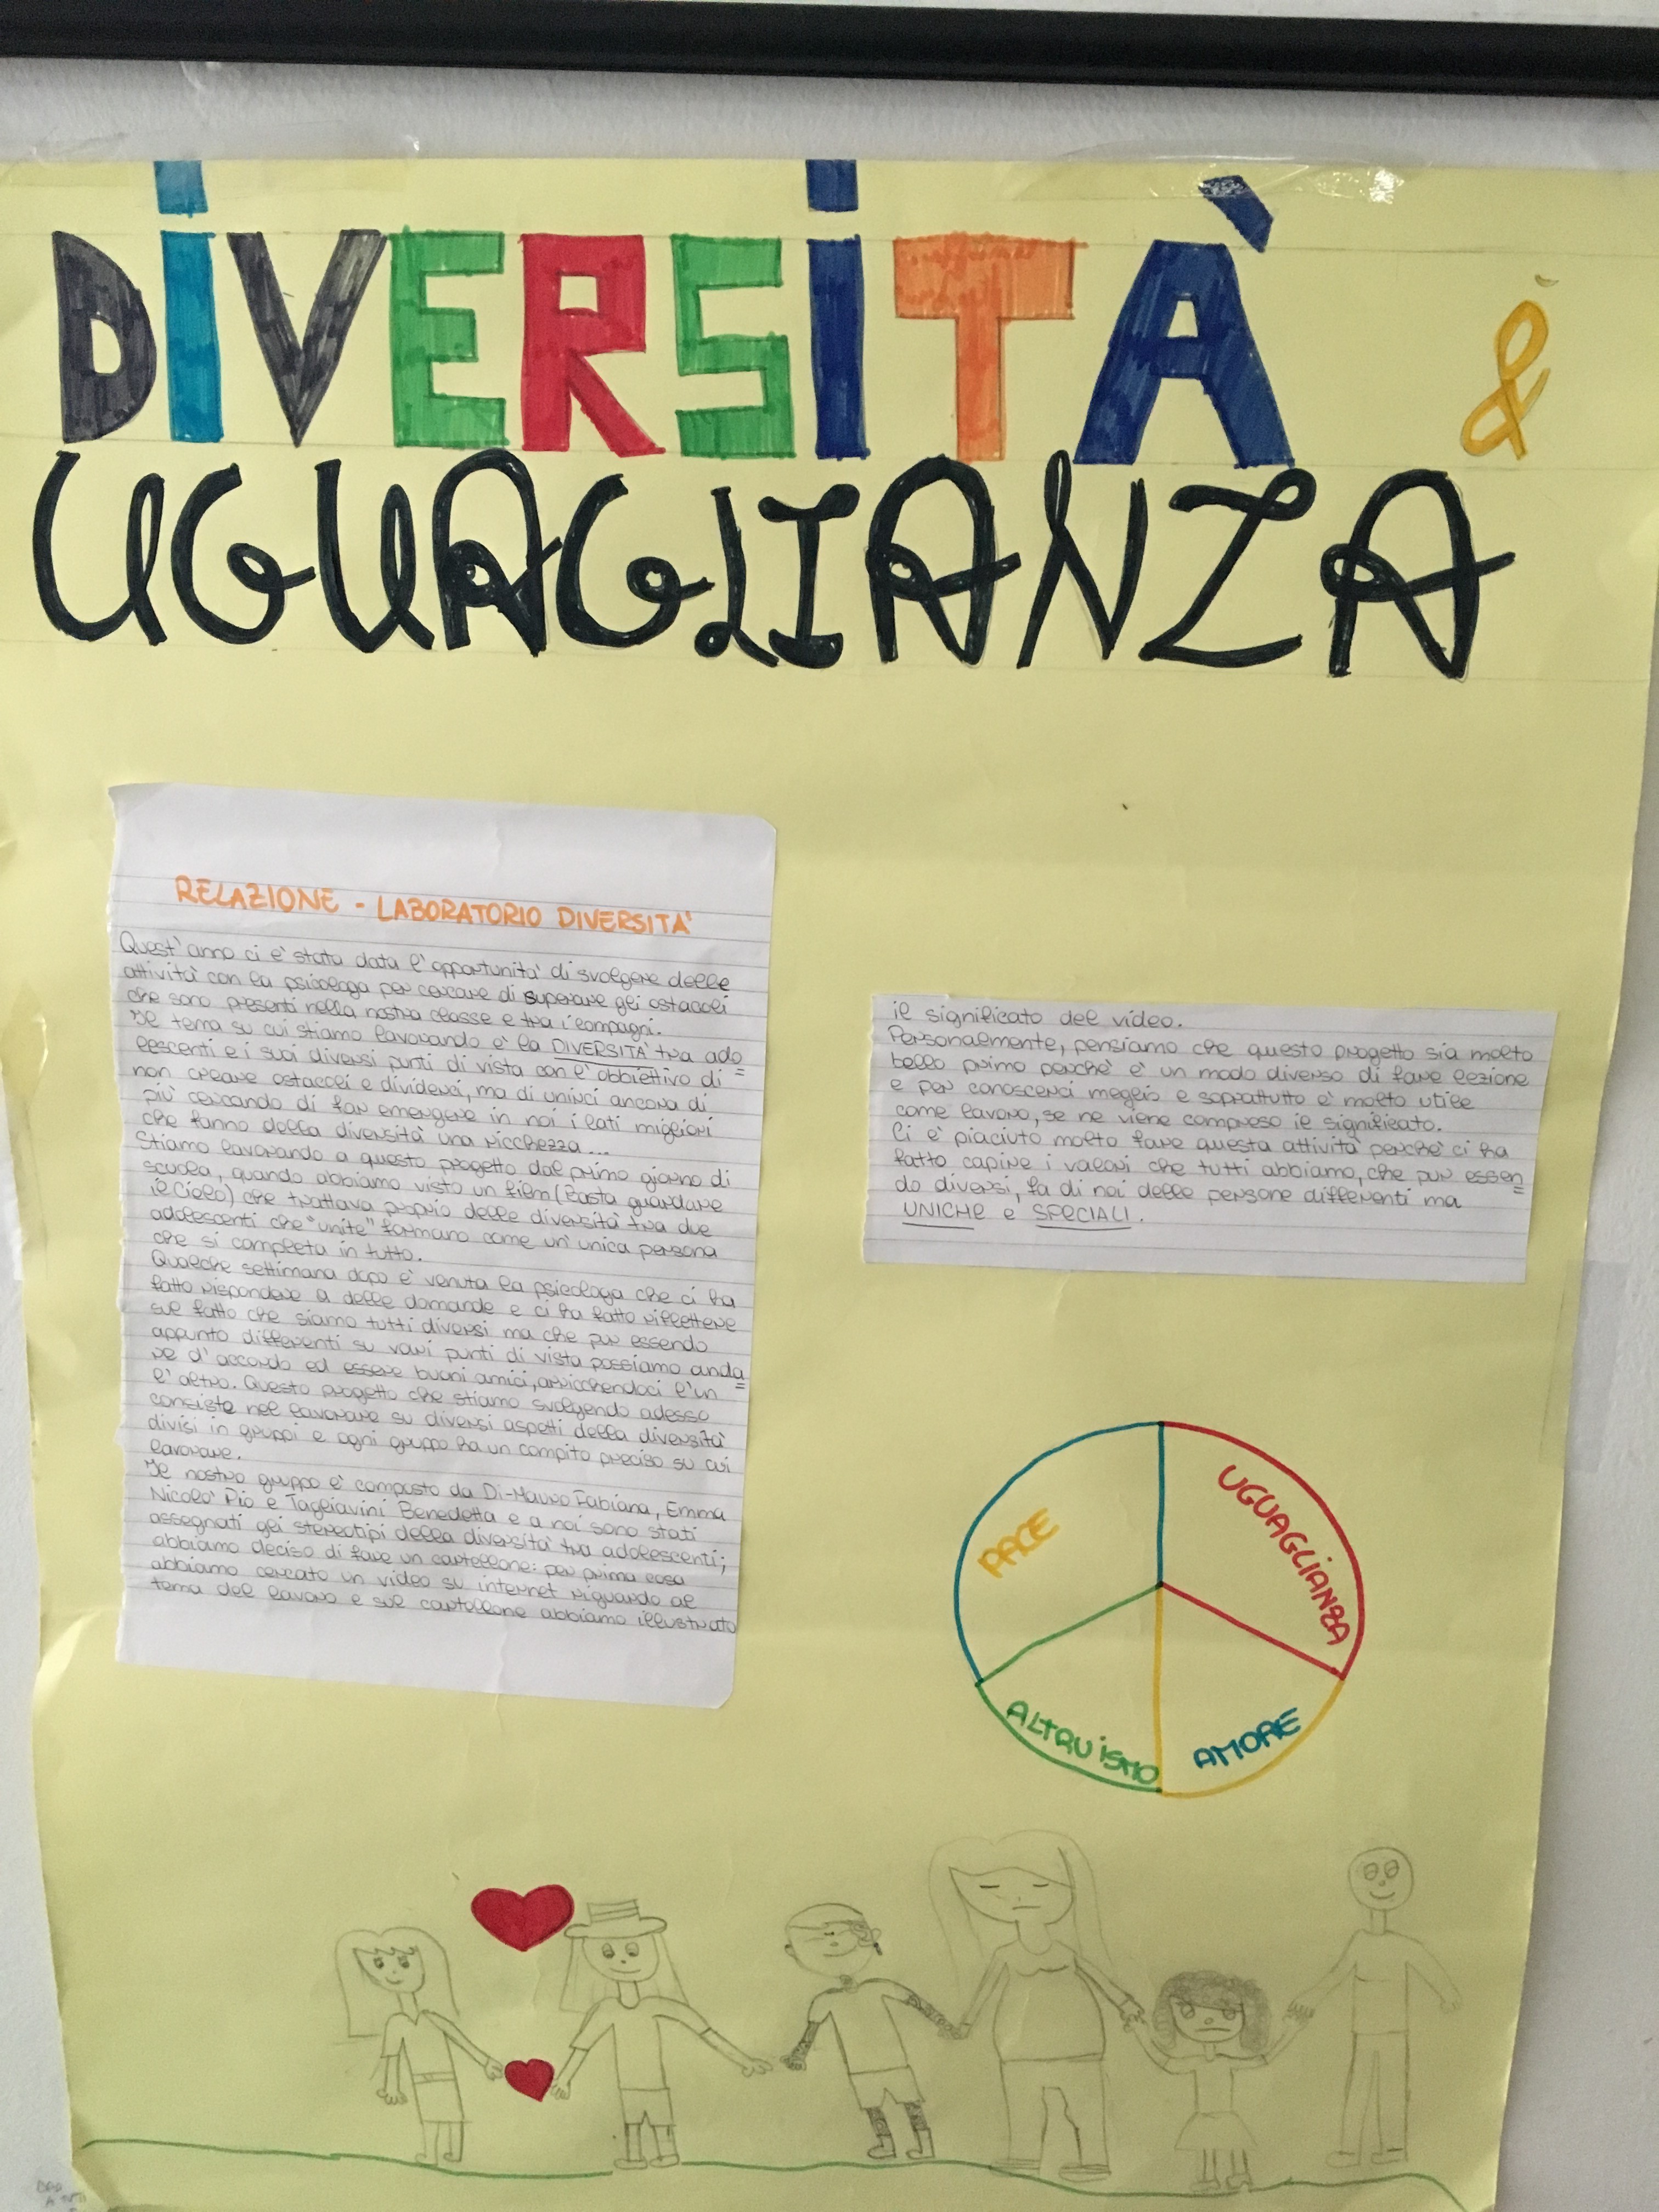 DIVERSITÀ &
UGUAGLIANZA
RELAZIONE - LABORATORIO DIVERSITA'
Quest'anno ci è stata data l'opportunità di svolgere delle
attività con la psicologa per cercare di superare gli ostacoli
che sono presenti nella nostra classe e tra i compagni.
Il tema su cui stiamo lavorando è la DIVERSITÀ tra ado=
lescenti e i suoi diversi punti di vista con l'obbiettivo di
non creare ostacoli e dividerci, ma di unirci ancora di
più cercando di far emergere in noi i lati migliori
che fanno della diversità una ricchezza...
Stiamo lavorando a questo progetto dal primo giorno di
scuola, quando abbiamo visto un film (Basta guardare
il Cielo) che trattava proprio delle diversità tra due
adolescenti che "unite" formano come un'unica persona
che si completa in tutto.
Qualche settimana dopo è venuta la psicologa che ci ha
fatto rispondere a delle domande e ci ha fatto riflettere
sul fatto che siamo tutti diversi ma che pur essendo
appunto differenti su vari punti di vista possiamo anda=
re d'accordo ed essere buoni amici, arricchendoci l'un
l'altro. Questo progetto che stiamo svolgendo adesso
consiste nel lavorare su diversi aspetti della diversità
divisi in gruppi e ogni gruppo ha un compito preciso su cui
lavorare.
Il nostro gruppo è composto da Di-Mauro Fabiana, Emma
Nicolò Pio e Tagliavini Benedetta e a noi sono stati
assegnati gli stereotipi della diversità tra adolescenti;
abbiamo deciso di fare un cartellone: per prima cosa
abbiamo cercato un video su internet riguardo al
tema del lavoro e sul cartellone abbiamo illustrato
il significato del video.
Personalmente, pensiamo che questo progetto sia molto
bello primo perchè è un modo diverso di fare lezione
e per conoscerci meglio e soprattutto è molto utile
come lavoro, se ne viene compreso il significato.
Ci è piaciuto molto fare questa attività perchè ci ha
fatto capire i valori che tutti abbiamo, che pur essen=
do diversi, fa di noi delle persone differenti ma
UNICHE e SPECIALI.
PACE
UGUAGLIANZA
ALTRUISMO
AMORE